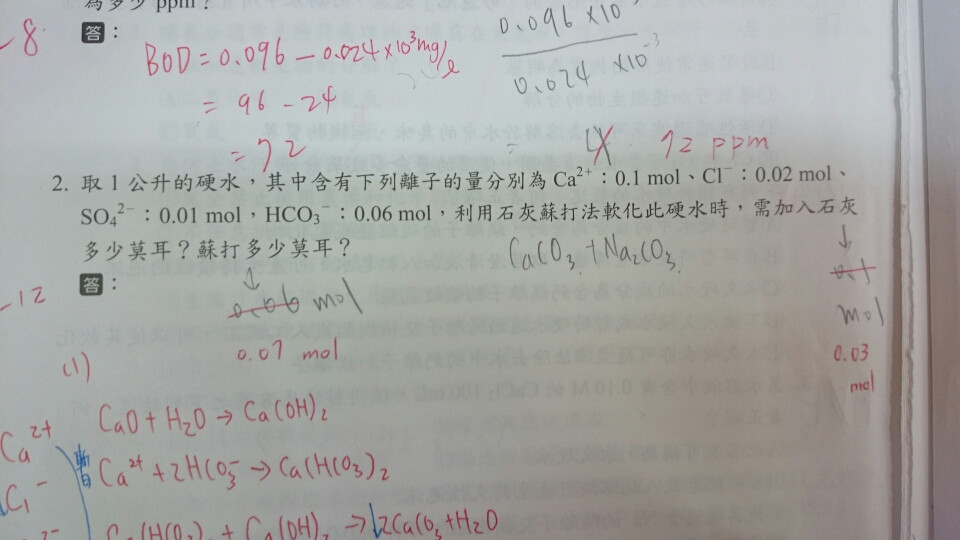 為多少 ppm？
-8
答：
BOD = 0.096 - 0.024 × 10³ mg/ℓ
0.096 × 10⁻³
0.024 × 10⁻³
= 96 - 24
= 72
= 4 72 ppm
2. 取 1 公升的硬水，其中含有下列離子的量分別為 Ca²⁺：0.1 mol、Cl⁻：0.02 mol、
SO₄²⁻：0.01 mol，HCO₃⁻：0.06 mol，利用石灰蘇打法軟化此硬水時，需加入石灰
多少莫耳？蘇打多少莫耳？
CaCO₃ + Na₂CO₃
↓
0.1
mol
0.03
mol
答：
-12
↓
0.06 mol
0.07 mol
(1)
CaO + H₂O → Ca(OH)₂
Ca²⁺
暫
Ca²⁺ + 2HCO₃⁻ → Ca(HCO₃)₂
Cl⁻
Ca(HCO₃)₂ + Ca(OH)₂ → ↓2CaCO₃ + H₂O